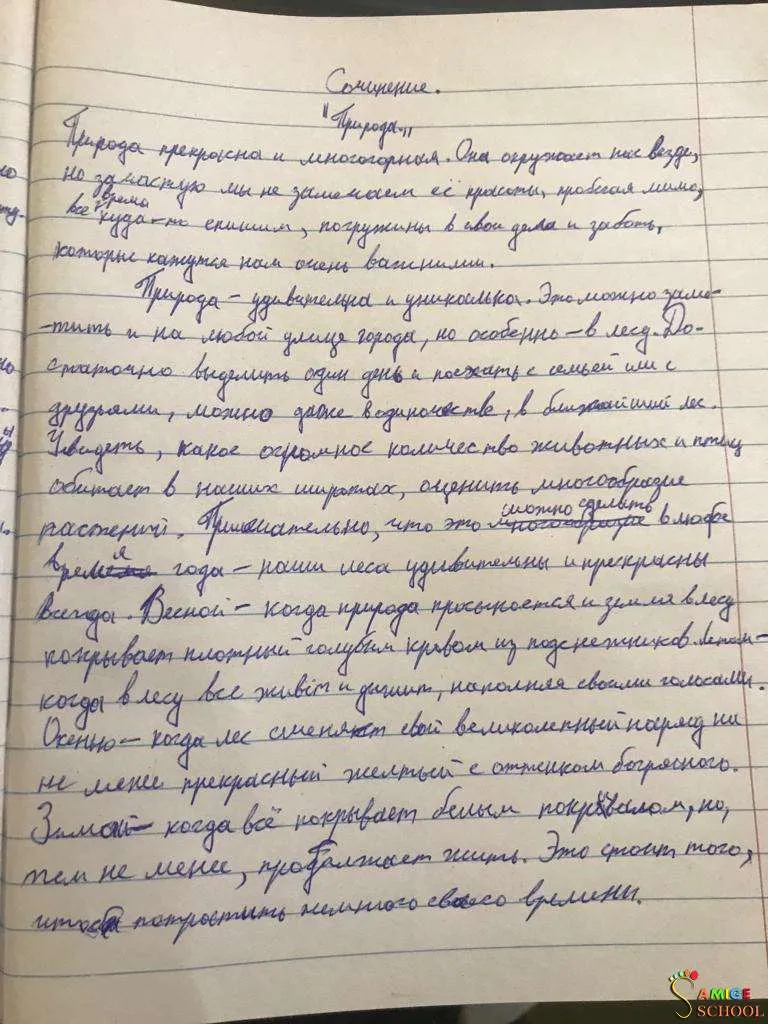 Сочинение.
"Природа."
Природа прекрасна и многогорная. Она окружает нас везде,
но зачастую мы не замечаем её красоты, пробегая мимо,
всё время куда-то спишим, погружины в свои дела и заботы,
которые кажутся нам очень важними.
Природа - удивительна и уникалька. Это можно заме-
-тить и на любой улице города, но особенно - в лесу. До-
статочно выделить один день и поехать с семьей или с
друзрями, можно даже в одиночестве, в ближайший лес.
Увидеть, какое огромное количество животных и птиц
обитает в наших широтах, оценить многообразие
растений. Примечательно, что это можно сделать в любое
время года - наши леса удивительны и прекрасны
всегда. Весной - когда природа просыпается и земля в лесу
покрывает плотный голубым кровом из подснежников. Летом -
когда в лесу все живёт и дышит, наполняя своими голосами.
Осенью - когда лес сменяет свой великолепный наряд на
не мене прекрасный желтый с оттенком багряного.
Зимой - когда всё покрывает белым покрывалом, но,
тем не менее, продолжает жить. Это стоит того,
чтобы потростить немного своего времены.
SAMIGE
SCHOOL